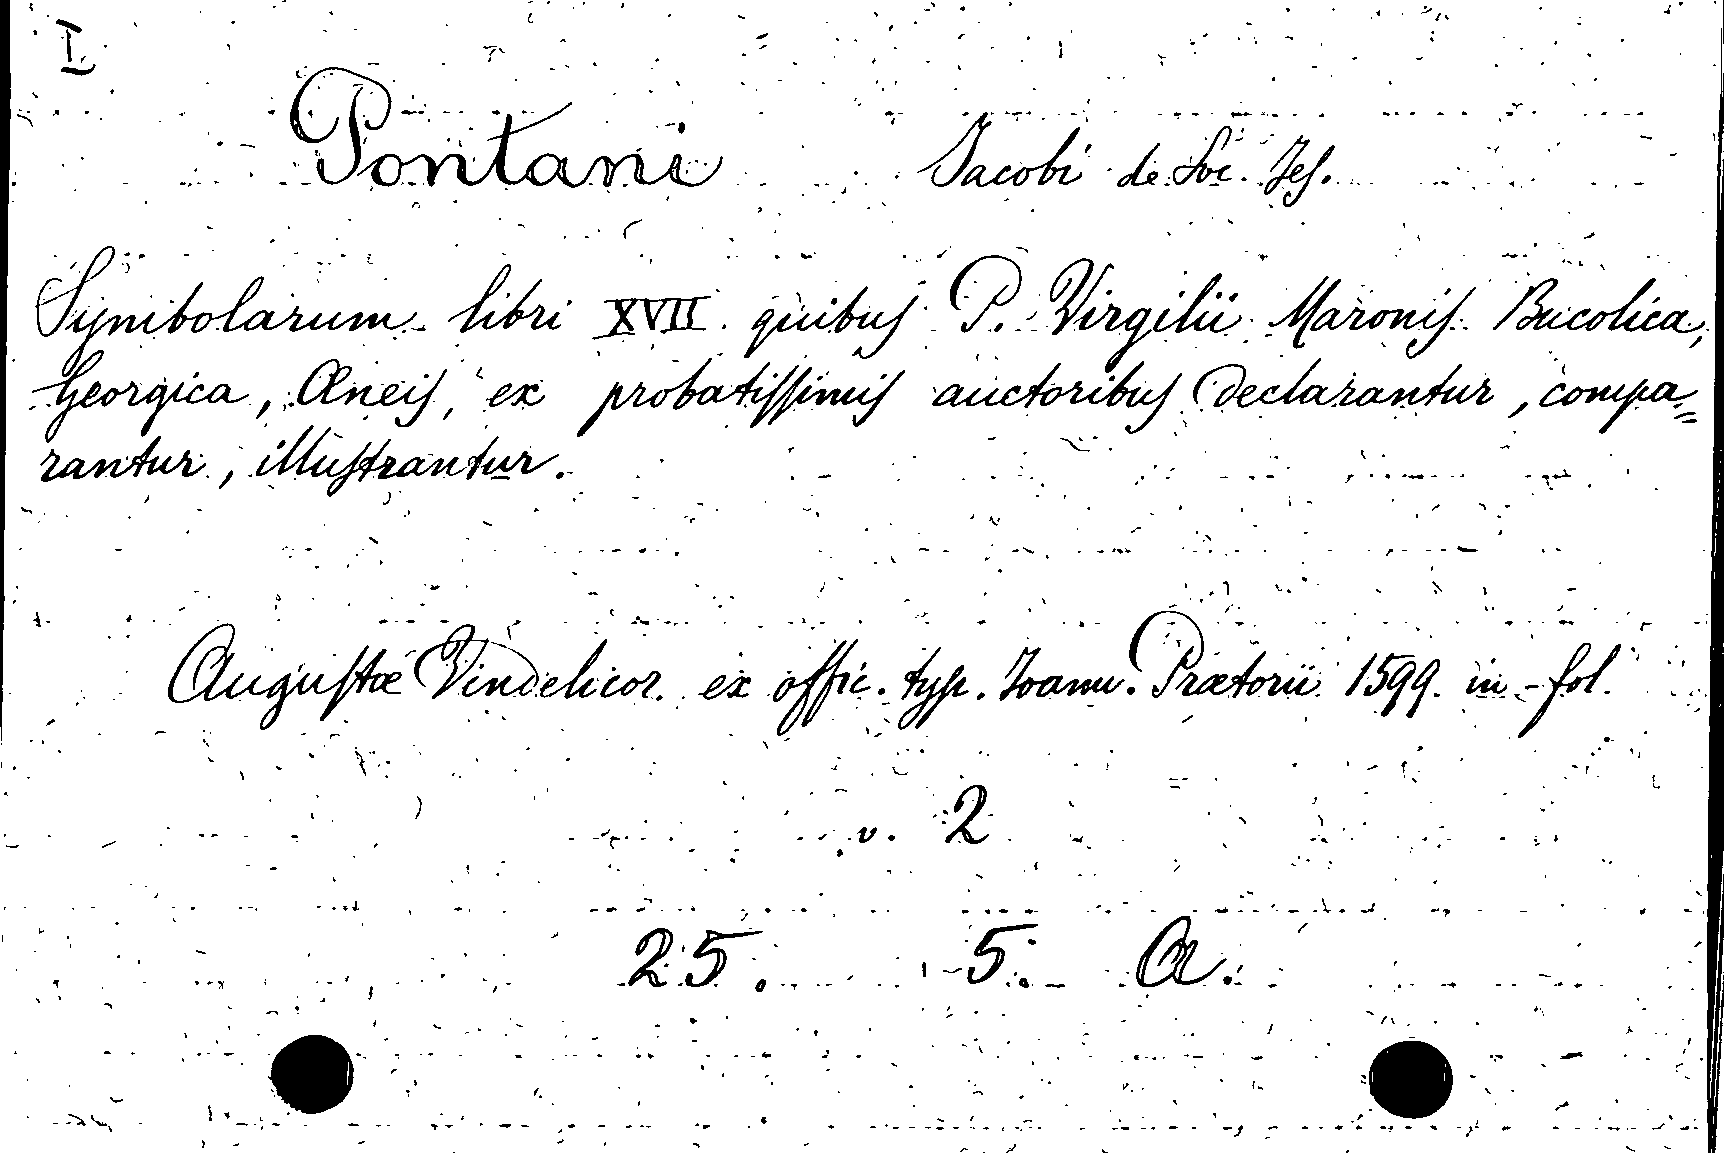 I
Pontani Jacobi de Soc. Jes.
Symbolarum libri XVII quibus P. Virgilii Maronis Bucolica,
Georgica, Æneis, ex probatissimis auctoribus declarantur, compa=
rantur, illustrantur.
Augustæ Vindelicor. ex offic. typ. Joann. Prætorii 1599. in-fol.
v. 2
25. 5. A.